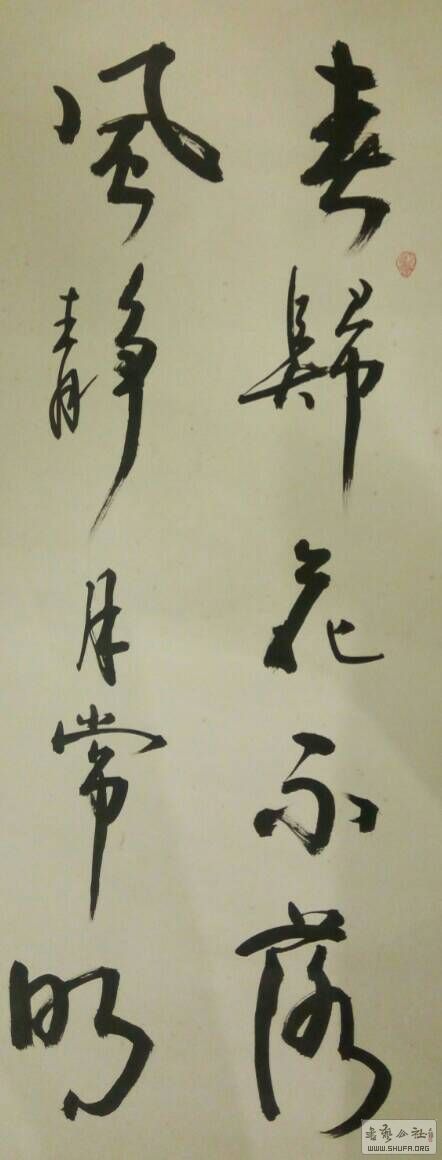 春歸花不落
風静月常明
书艺公社
WWW.SHUFA.ORG